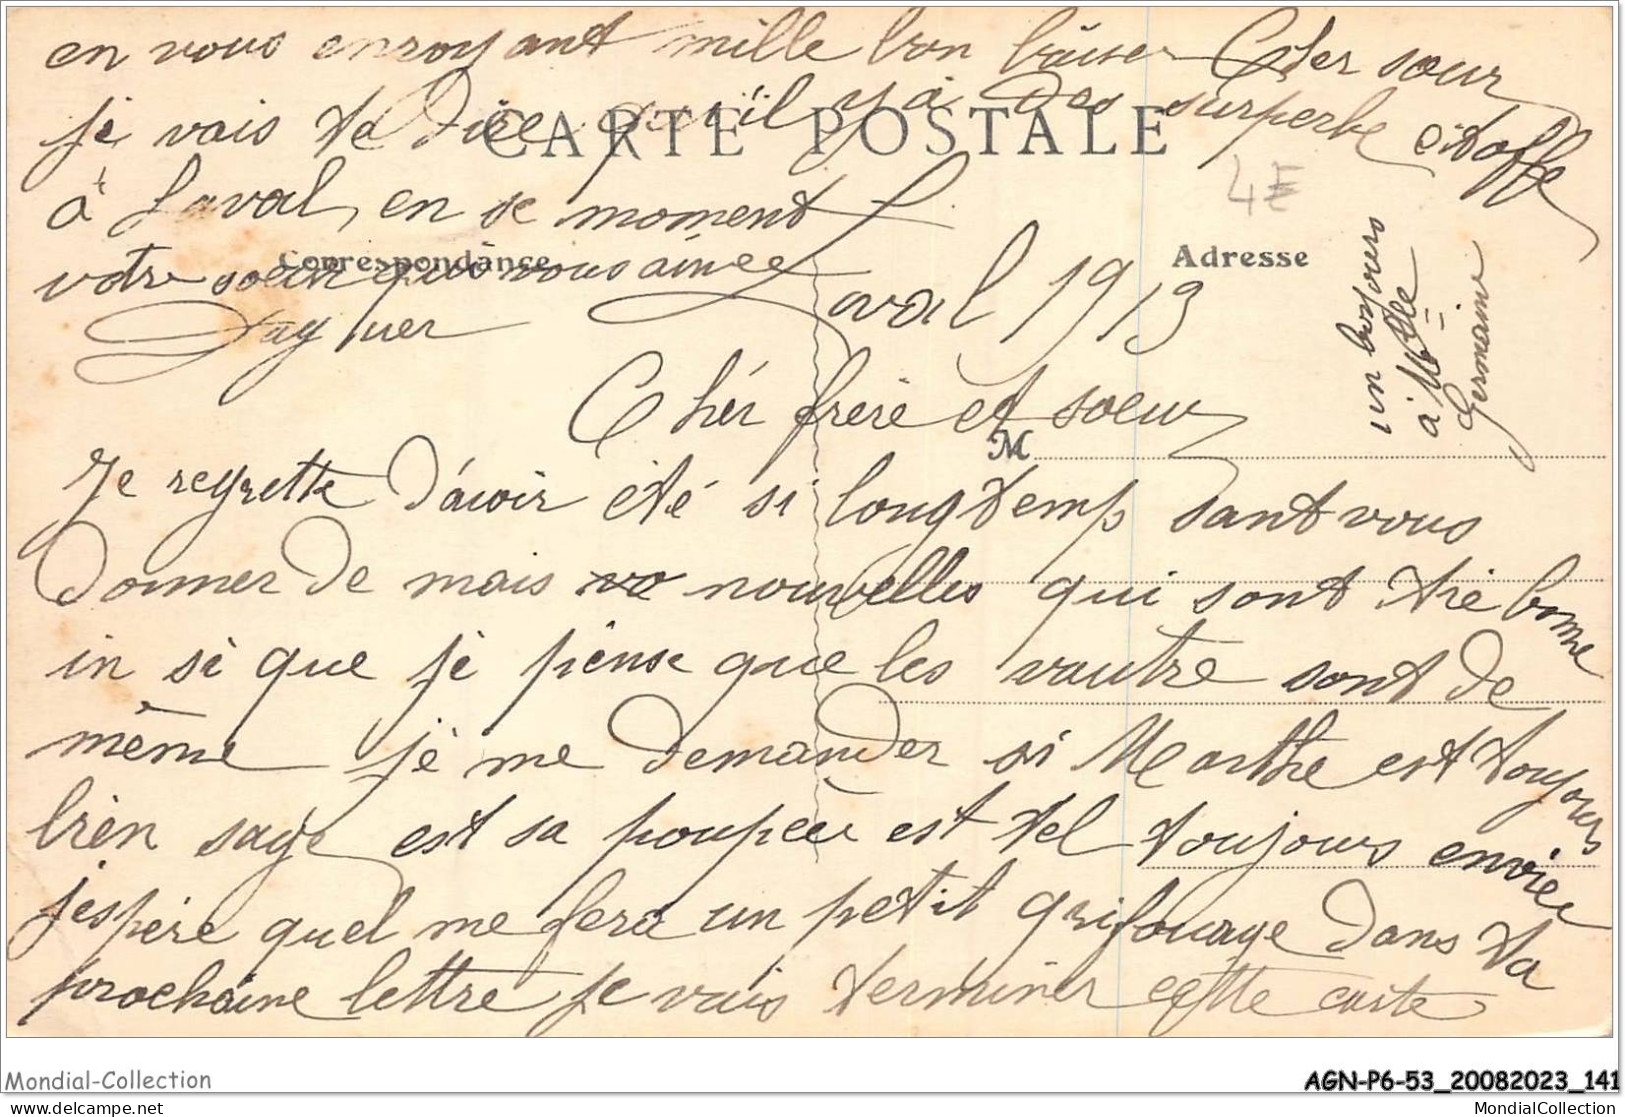 en vous envoyant mille bon baiser Cher soeur
je vais te dire qu'il y a des superbe étoffe
CARTE POSTALE
à Laval, en se moment
4E
votre soeur qui vous aimee
Correspondance
Adresse
Laval 1913
un bonjours
à Mlle
Germain
Chér frère et soeur
M
Je regrette d'avoir été si longtemp sant vous
donner de mais vo nouvelles qui sont trè bonne
in si que je pense que les vautre sont de
même je me demander si Marthe est toujours
bien sage est sa poupèe est tel toujours enviée
j'espère quel me fera un petit grifourage dans ta
prochaine lettre je vais terminer cette carte
Mondial-Collection
AGN-P6-53_20082023_141
www.delcampe.net
MondialCollection